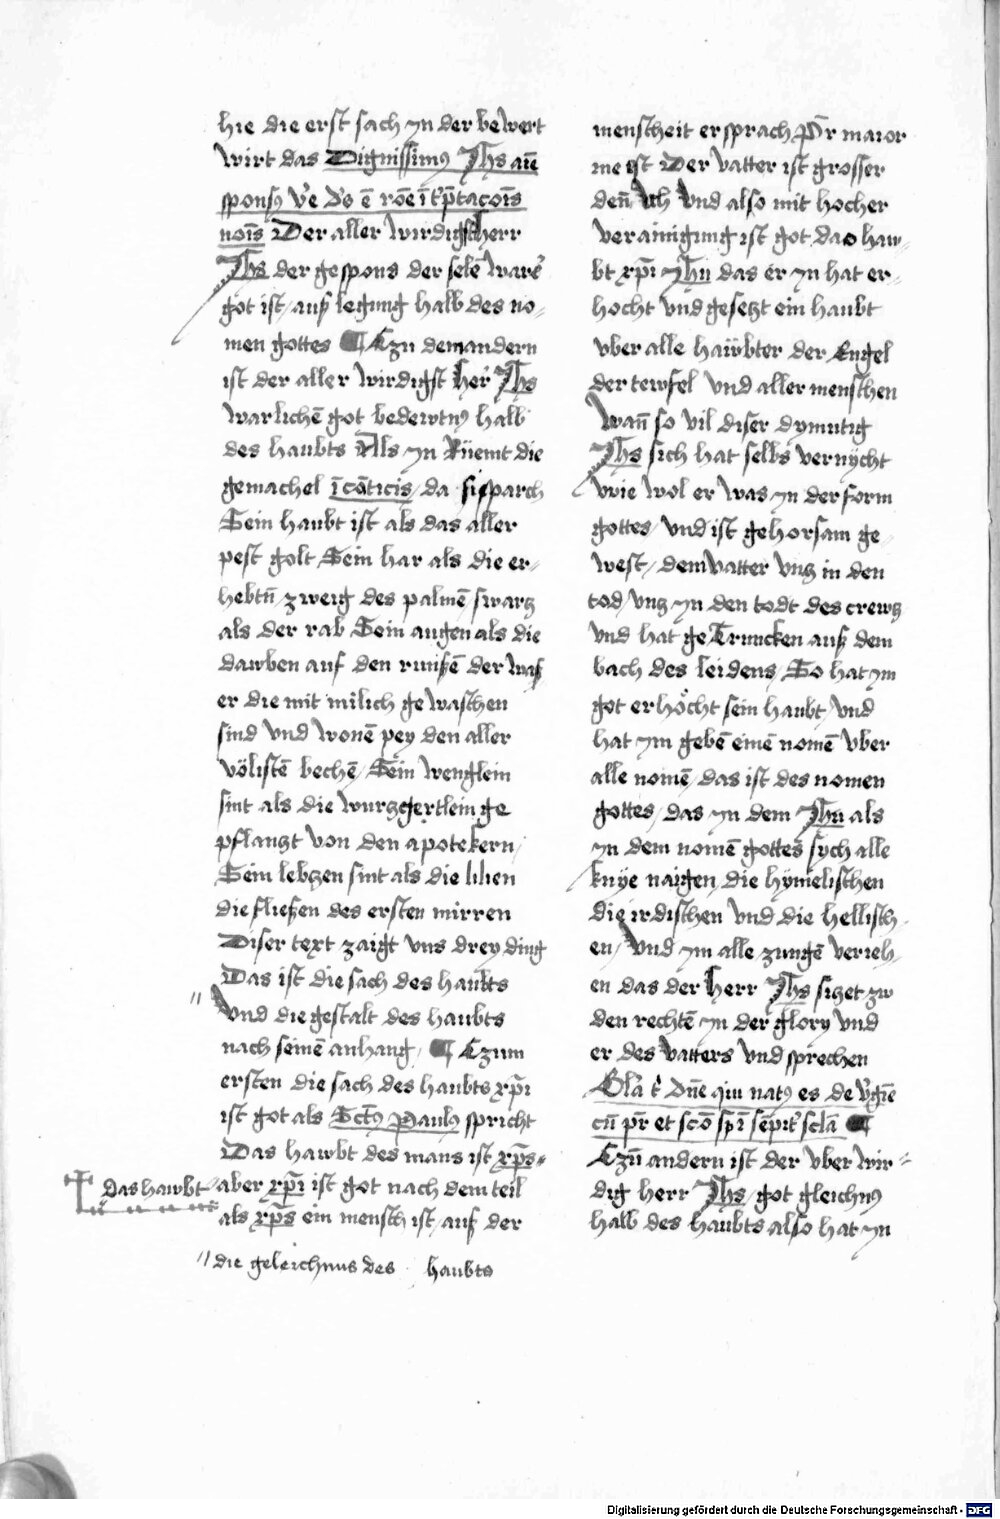 hie die erst sach yn der bewert
wirt das Dignissimꝰ Jhs aīe
sponsꝰ
noīs Der aller wirdigst herr
Jhs der gespons der selē warer
got ist / auß legung halb des no-
men gottes ¶ Czu dem andern
ist der aller wirdigst her Jhs
warlichē got bedewtnꝰ halb
des haubts Als yn Rüemt die
gemachel ī cāticis / da si sparch
Sein haubt ist als das aller
pest golt Sein har als die er-
hebtn̄ zweig des palmē / swarz
als der rab Sein augen als die
dawben auf den rinißē der waß
er die mit milich gewaschen
sind vnd wonē pey den aller
völistē bechē / Sein wenglein
sint als die wurtzgertlein ge
pflantzt von den apotekern /
Sein lebtzen sint als die lilien
die fließen des ersten mirren
Diser text zaigt vns drey ding
Das ist die sach des haubts
" vnd die gestalt des haubts
nach seinē anhang / ¶ Czum
ersten die sach des haubts xp̄i
ist got als Sctꝰ Paulꝰ spricht
Das hawbt des mans ist xp̄s
das hawbt
aber xp̄i ist got nach dem teil
als xp̄s ein mensch ist / auf der
" die geleichnus des haubts
menscheit er sprach Pr̄ maior
me ist Der vatter ist grosser
den̄ ich vnd also mit hocher
verainigung ist got das haw-
bt xp̄i Jhu das er yn hat er-
hocht vnd gesetzt ein haubt
vber alle haübter der Engel
der tewfel vnd aller menschen
wan̄ so vil diser dymutig
Jhs sich hat selbs vernycht
wie wol er was yn der form
gottes / vnd ist gehorsam ge-
west / dem vatter vntz in den
tod / vntz yn den todt des crewtz
vnd hat getruncken auß dem
bach des leidens / So hat ym
got erhöcht sein haubt / vnd
hat ym gebē einē nomē vber
alle nomē / das ist des nomen
gottes / das yn dem Jhu als
yn dem nomē gottes sych alle
knye naigen / die hymelischen
die irdischen vnd die hellisch-
en / vnd ym alle zungē verieh-
en das der herr Jhs sitzet zw
den rechtē yn der glory vnd
er des vatters vnd sprechen
Glā t' dn̄e qui natꝰ es de v'gīe
cū pr̄ et scō sp̄ū sēpit' sclā ¶
Czū andern ist der vber wir-
dig herr Jhs / got gleichnꝰ
halb des haubts also hat yn
Digitalisierung gefördert durch die Deutsche Forschungsgemeinschaft - DFG